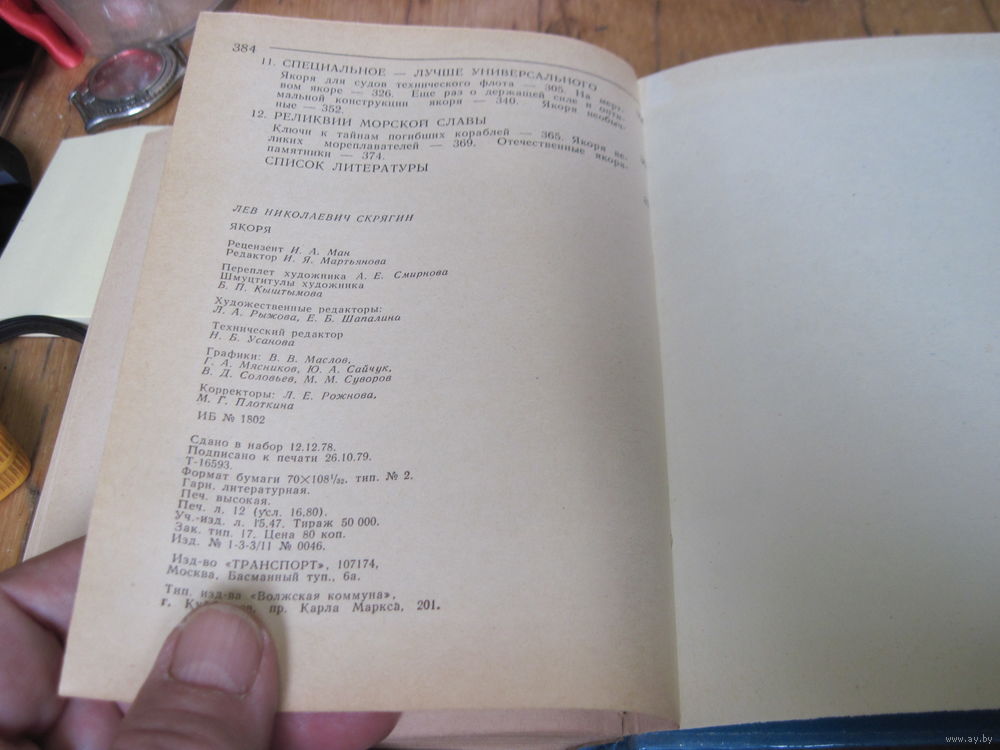 384
11. СПЕЦИАЛЬНОЕ — ЛУЧШЕ УНИВЕРСАЛЬНОГО
Якоря для судов технического флота — 305. На мерт-
вом якоре — 326. Еще раз о держащей силе и опти-
мальной конструкции якоря — 340. Якоря необыч-
ные — 352.
12. РЕЛИКВИИ МОРСКОЙ СЛАВЫ
Ключи к тайнам погибших кораблей — 365. Якоря ве-
ликих мореплавателей — 369. Отечественные якоря-
памятники — 374.
СПИСОК ЛИТЕРАТУРЫ
ЛЕВ НИКОЛАЕВИЧ СКРЯГИН
ЯКОРЯ
Рецензент И. А. Ман
Редактор И. Я. Мартьянова
Переплет художника А. Е. Смирнова
Шмуцтитулы художника
Б. П. Кыштымова
Художественные редакторы:
Л. А. Рыжова, Е. Б. Шапалина
Технический редактор
Н. Б. Усанова
Графики: В. В. Маслов,
Г. А. Мясников, Ю. А. Сайчук,
В. Д. Соловьев, М. М. Суворов
Корректоры: Л. Е. Рожнова,
М. Г. Плоткина
ИБ № 1802
Сдано в набор 12.12.78.
Подписано к печати 26.10.79.
Т-16593.
Формат бумаги 70×108¹/₃₂, тип. № 2.
Гарн. литературная.
Печ. высокая.
Печ. л. 12 (усл. 16.80).
Уч.-изд. л. 15.47. Тираж 50 000.
Зак. тип. 17. Цена 80 коп.
Изд. № 1-3-3/11 № 0046.
Изд-во «ТРАНСПОРТ», 107174,
Москва, Басманный туп., 6а.
Тип. изд-ва «Волжская коммуна»,
г. пр. Карла Маркса, 201.
www.ay.by